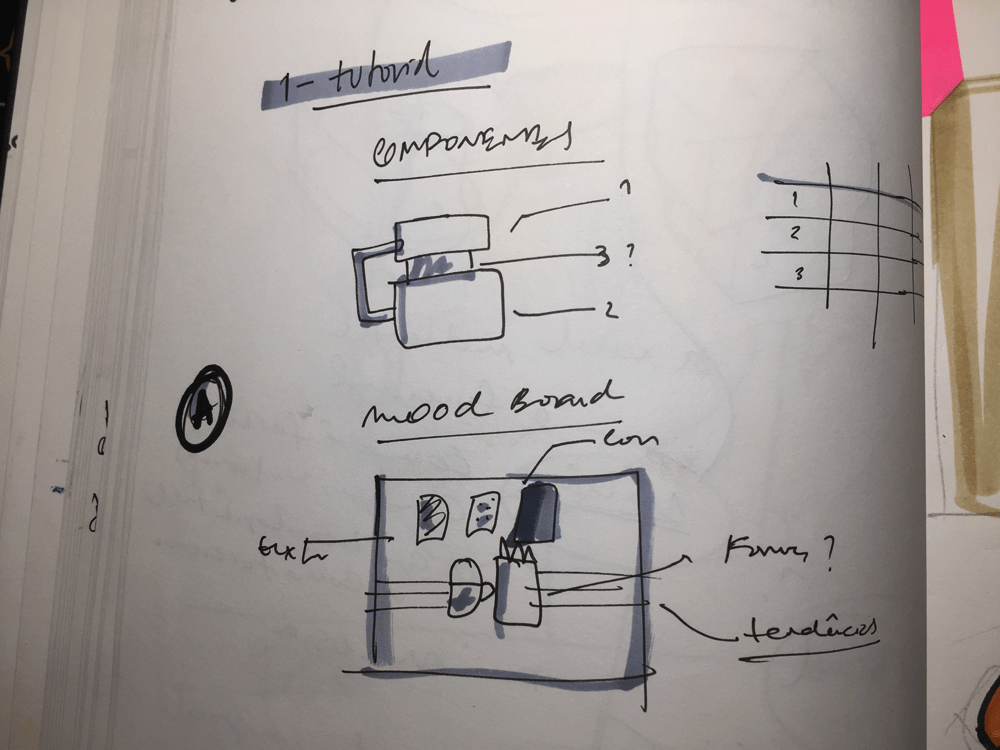 1- tutorial
COMPONENTES
1
3 ?
2
1
2
3
A
mood Board
Con
Formas ?
tendências